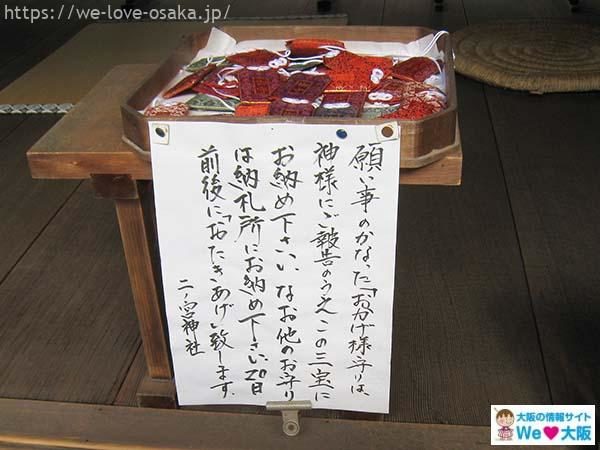 https://we-love-osaka.jp/
願い事のかなった「おかげ様守り」は、
神様にご報告のうえこの三宝に
お納め下さい。なお他のお守り
は納札所にお納め下さい。20日
前後に「おたきあげ」致します。
二ノ宮神社
大阪の情報サイト
We♥大阪